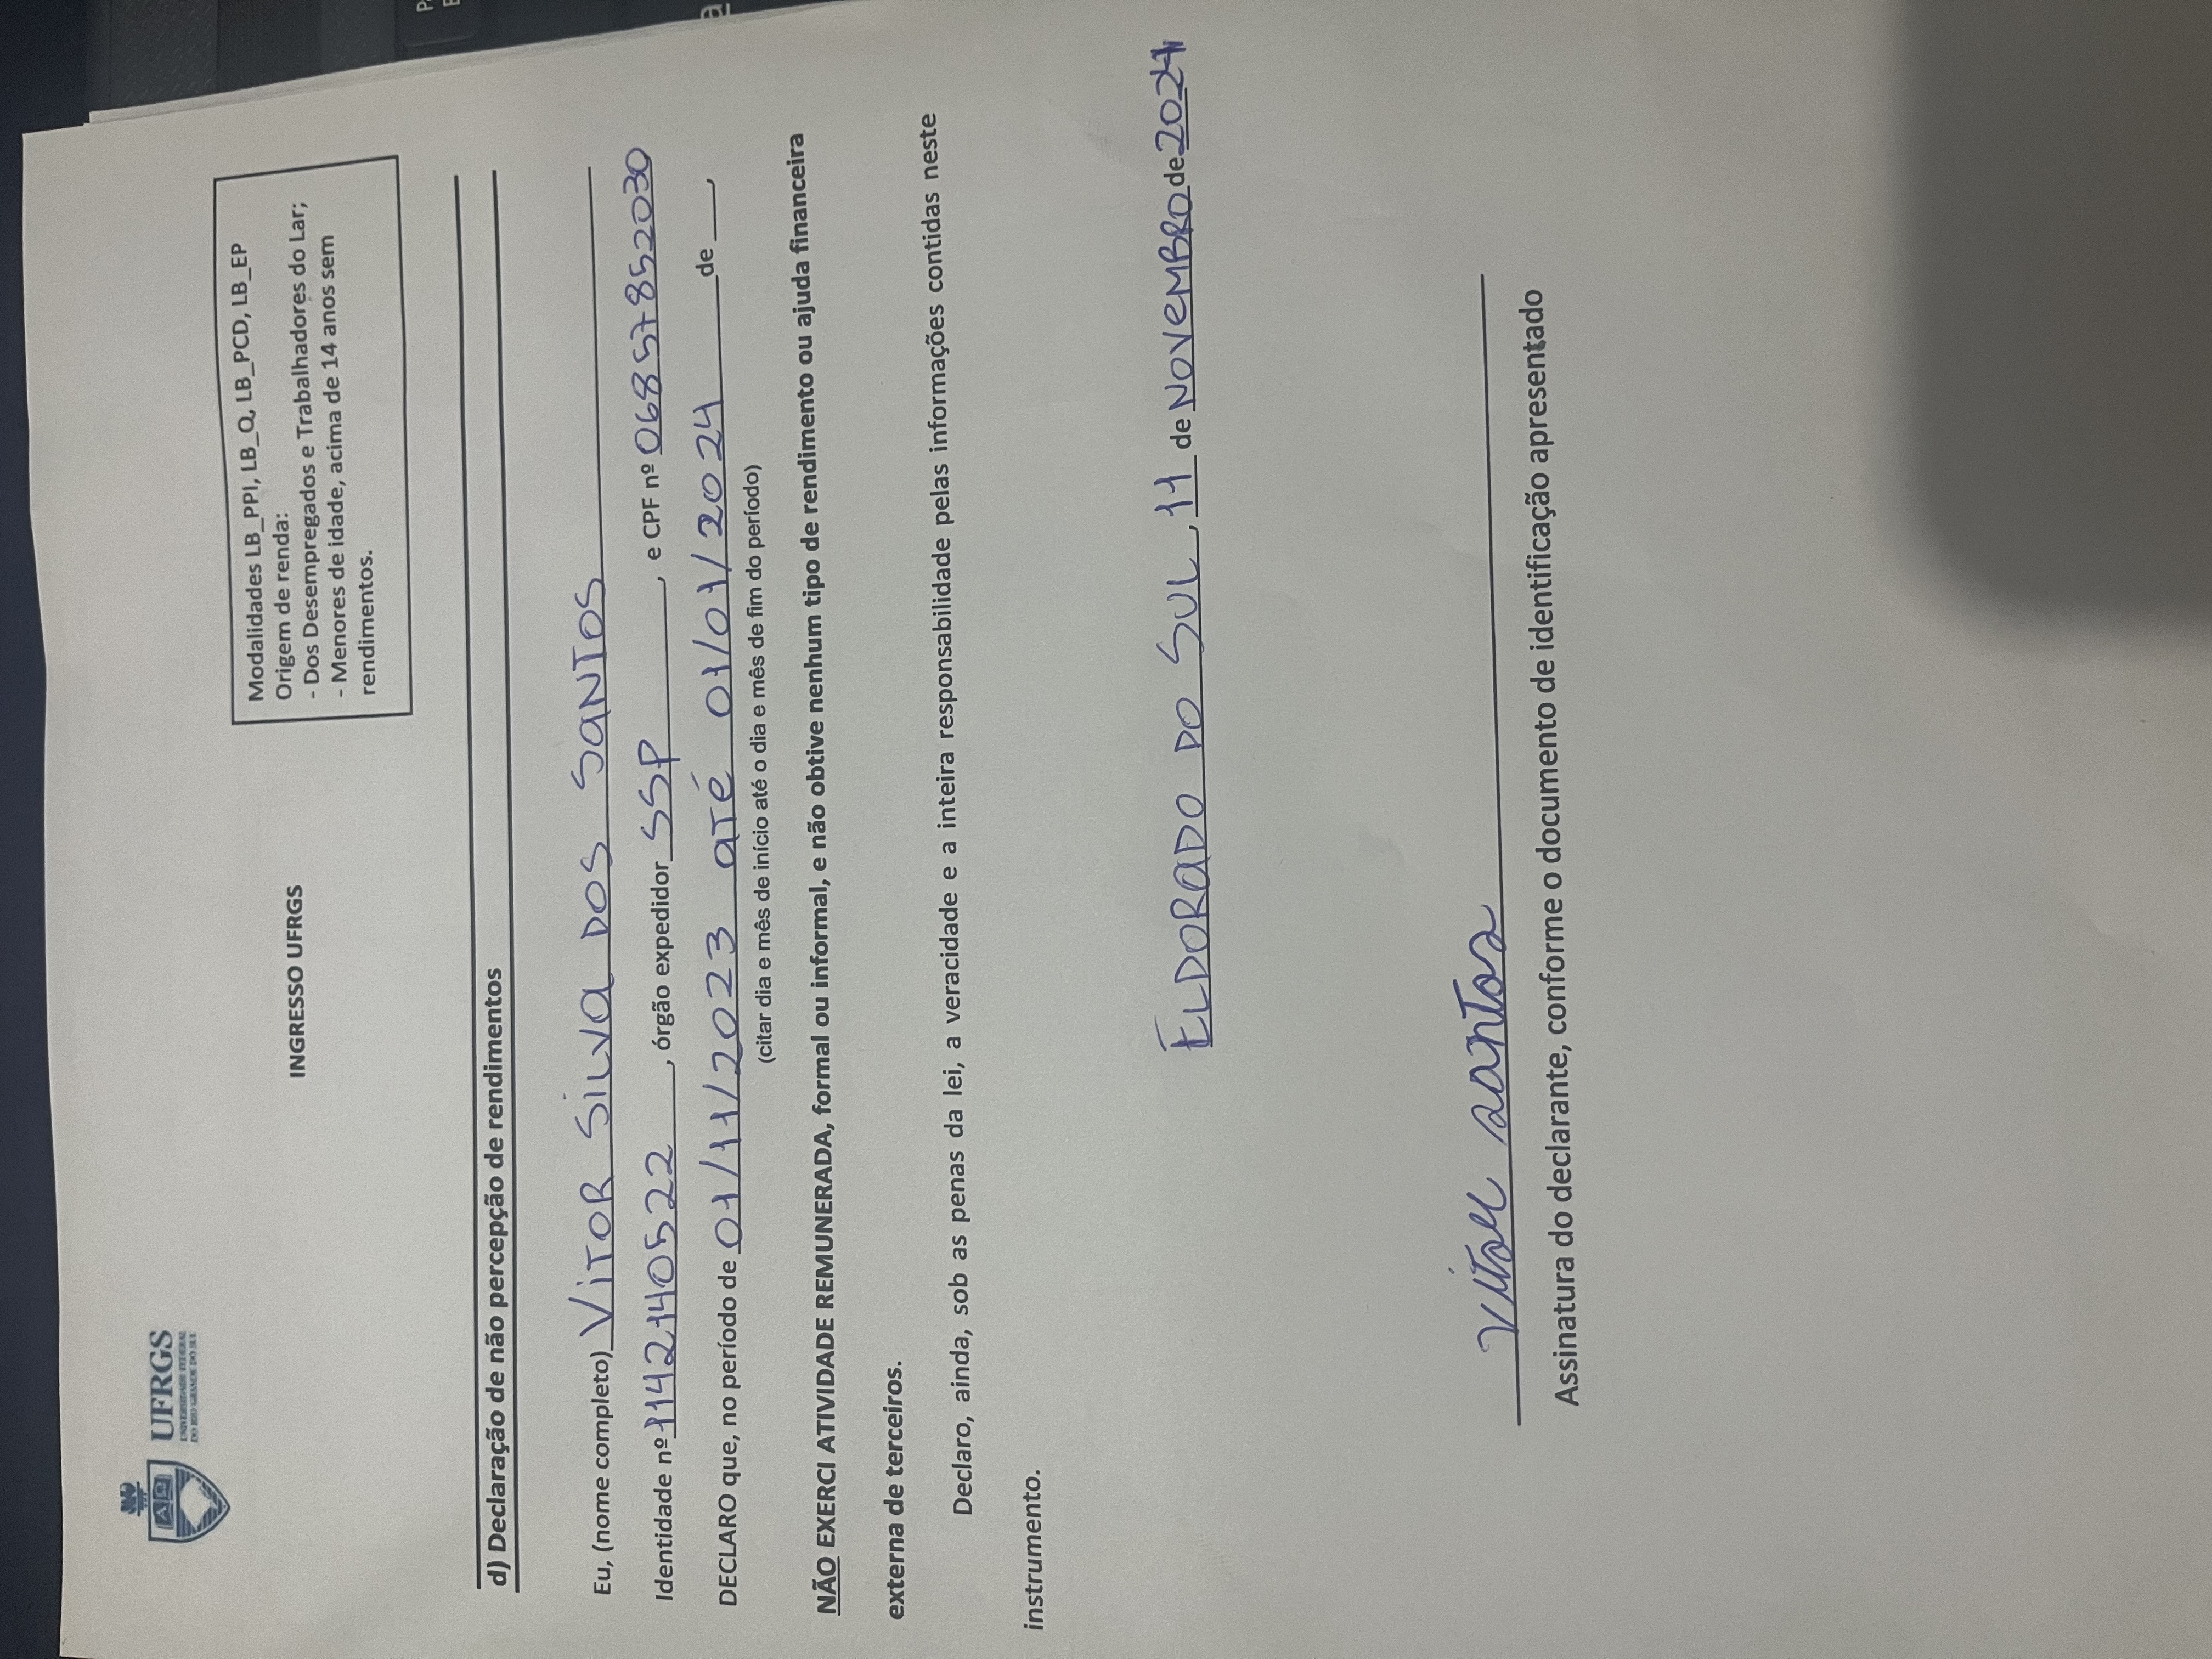 UFRGS
UNIVERSIDADE FEDERAL
DO RIO GRANDE DO SUL
INGRESSO UFRGS
Modalidades LB_PPI, LB_Q, LB_PCD, LB_EP
Origem de renda:
- Dos Desempregados e Trabalhadores do Lar;
- Menores de idade, acima de 14 anos sem
rendimentos.
d) Declaração de não percepção de rendimentos
Eu, (nome completo) VITOR SILVA DOS SANTOS
Identidade nº 1142140522, órgão expedidor SSP, e CPF nº 06857852030
DECLARO que, no período de 01/11/2023 até 01/01/2024 de ___,
(citar dia e mês de início até o dia e mês de fim do período)
NÃO EXERCI ATIVIDADE REMUNERADA, formal ou informal, e não obtive nenhum tipo de rendimento ou ajuda financeira
externa de terceiros.
Declaro, ainda, sob as penas da lei, a veracidade e a inteira responsabilidade pelas informações contidas neste
instrumento.
ELDORADO DO SUL, 11 de NOVEMBRO de 2024
Vitor Santos
Assinatura do declarante, conforme o documento de identificação apresentado